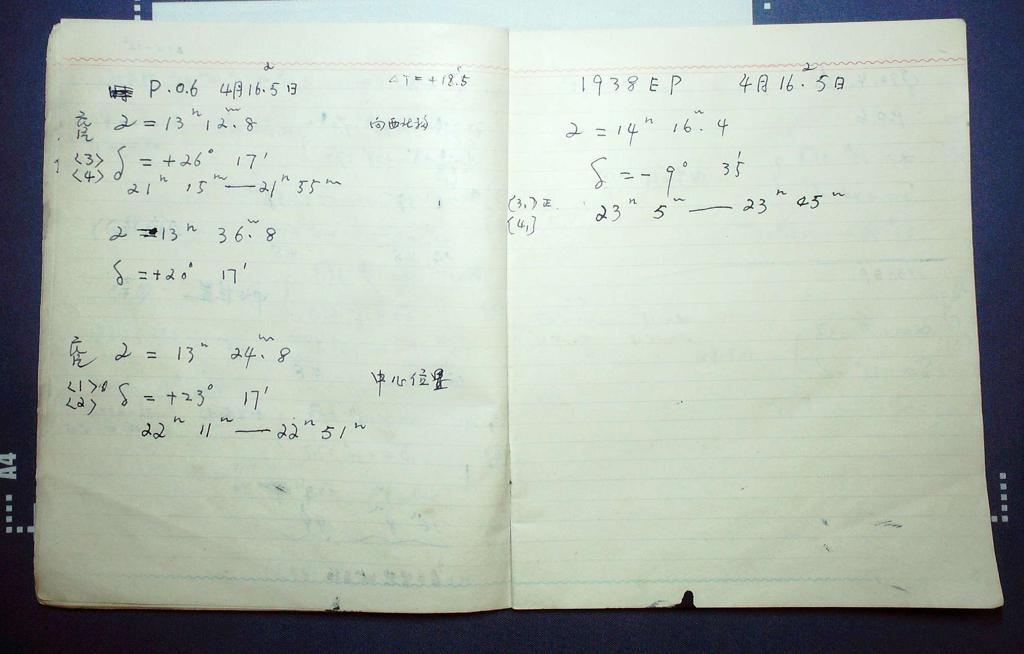 P.O.6 4月16.5日 ΔT=+18.5
α = 13ʰ 12ᵐ.8 向西北移
<3> δ = +26° 17′
<4> 21ʰ 15ᵐ — 21ʰ 55ᵐ
α = 13ʰ 36ᵐ.8
δ = +20° 17′
α = 13ʰ 24ᵐ.8
<1> δ = +23° 17′ 中心位置
<2>
22ʰ 11ᵐ — 22ʰ 51ᵐ
1938 EP 4月16.5日
α = 14ʰ 16ᵐ.4
δ = -9° 35′
23ʰ 5ᵐ — 23ʰ 45ᵐ
A4